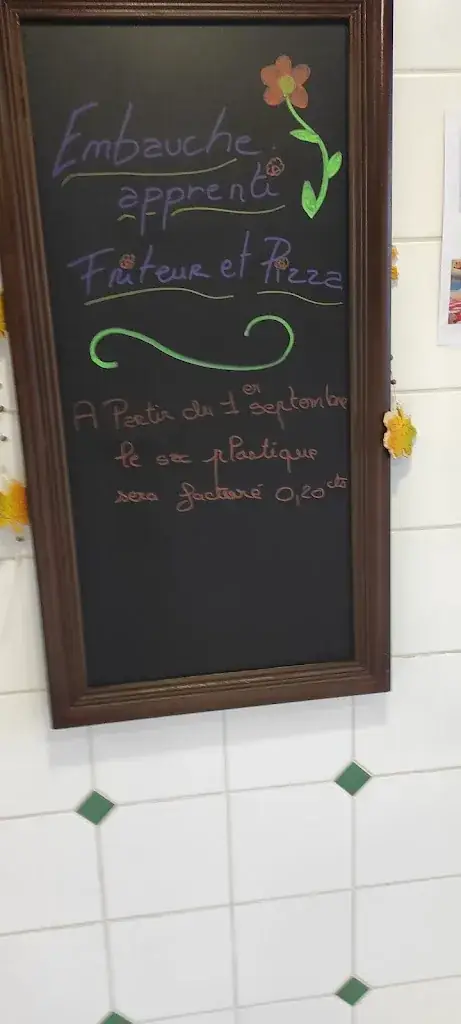 Embauche
apprenti
Friteur et Pizza
A Partir du 1er septembre
le sac plastique
sera facturé 0,20 cts